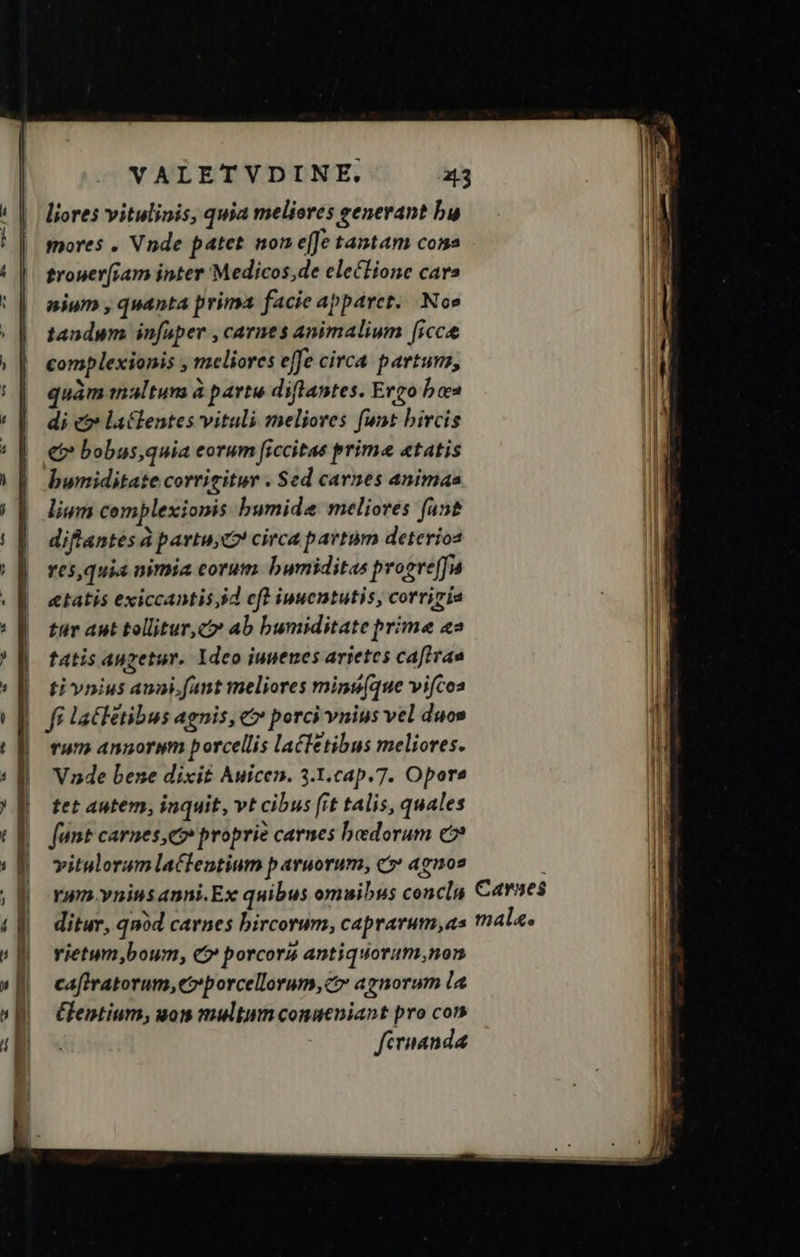 VALETVDINE. 43
liores vitulinis, quia meliores generant hu
mores. Vnde patet non eſſe tantam con⸗
trouerſiam inter Medicos,de electione car⸗
nium, quanta prima facie apparet. No⸗
tandum inſuper, carnes animalium ſiccæ
complexionis, meliores eſſe circa partum,
quàm multum à partu diſtantes. Ergo hœ⸗
di & lactentes vituli meliores ſunt hircis
& bobus,quia eorum ſiccitas primæ ætatis
humiditate corrigitur. Sed carnes anima⸗
lium complexionis humidæ meliores ſunt
diſtantes à partu,& circa partum deterio⸗
res,quia nimia eorum humiditas progreſſu
ætatis exiccantis,id eſt iuuentutis, corrigi⸗
tur aut tollitur,& ab humiditate primæ æ⸗
tatis augetur. Ideo iuuenes arietes caſtra⸗
ti vnius anni,ſunt meliores minuſque viſco⸗
ſi lactētibus agnis, & porci vnius vel duo⸗
rum annorum porcellis lactētibus meliores.
Vnde bene dixit Auicen. 3.1.cap.7. Opor⸗
tet autem, inquit, vt cibus ſit talis, quales
ſunt carnes,& propriè carnes hœdorum &
vitulorum lactentium paruorum, & agno⸗
rum vnius anni.Ex quibus omnibus conclu Carnes
ditur, quòd carnes hircorum, caprarum,a⸗ malæ.
rietum,boum, & porcorū antiquorum,non
caſtratorum,& porcellorum,& agnorum la
ctentium, non multum conueniant pro con
ſeruanda